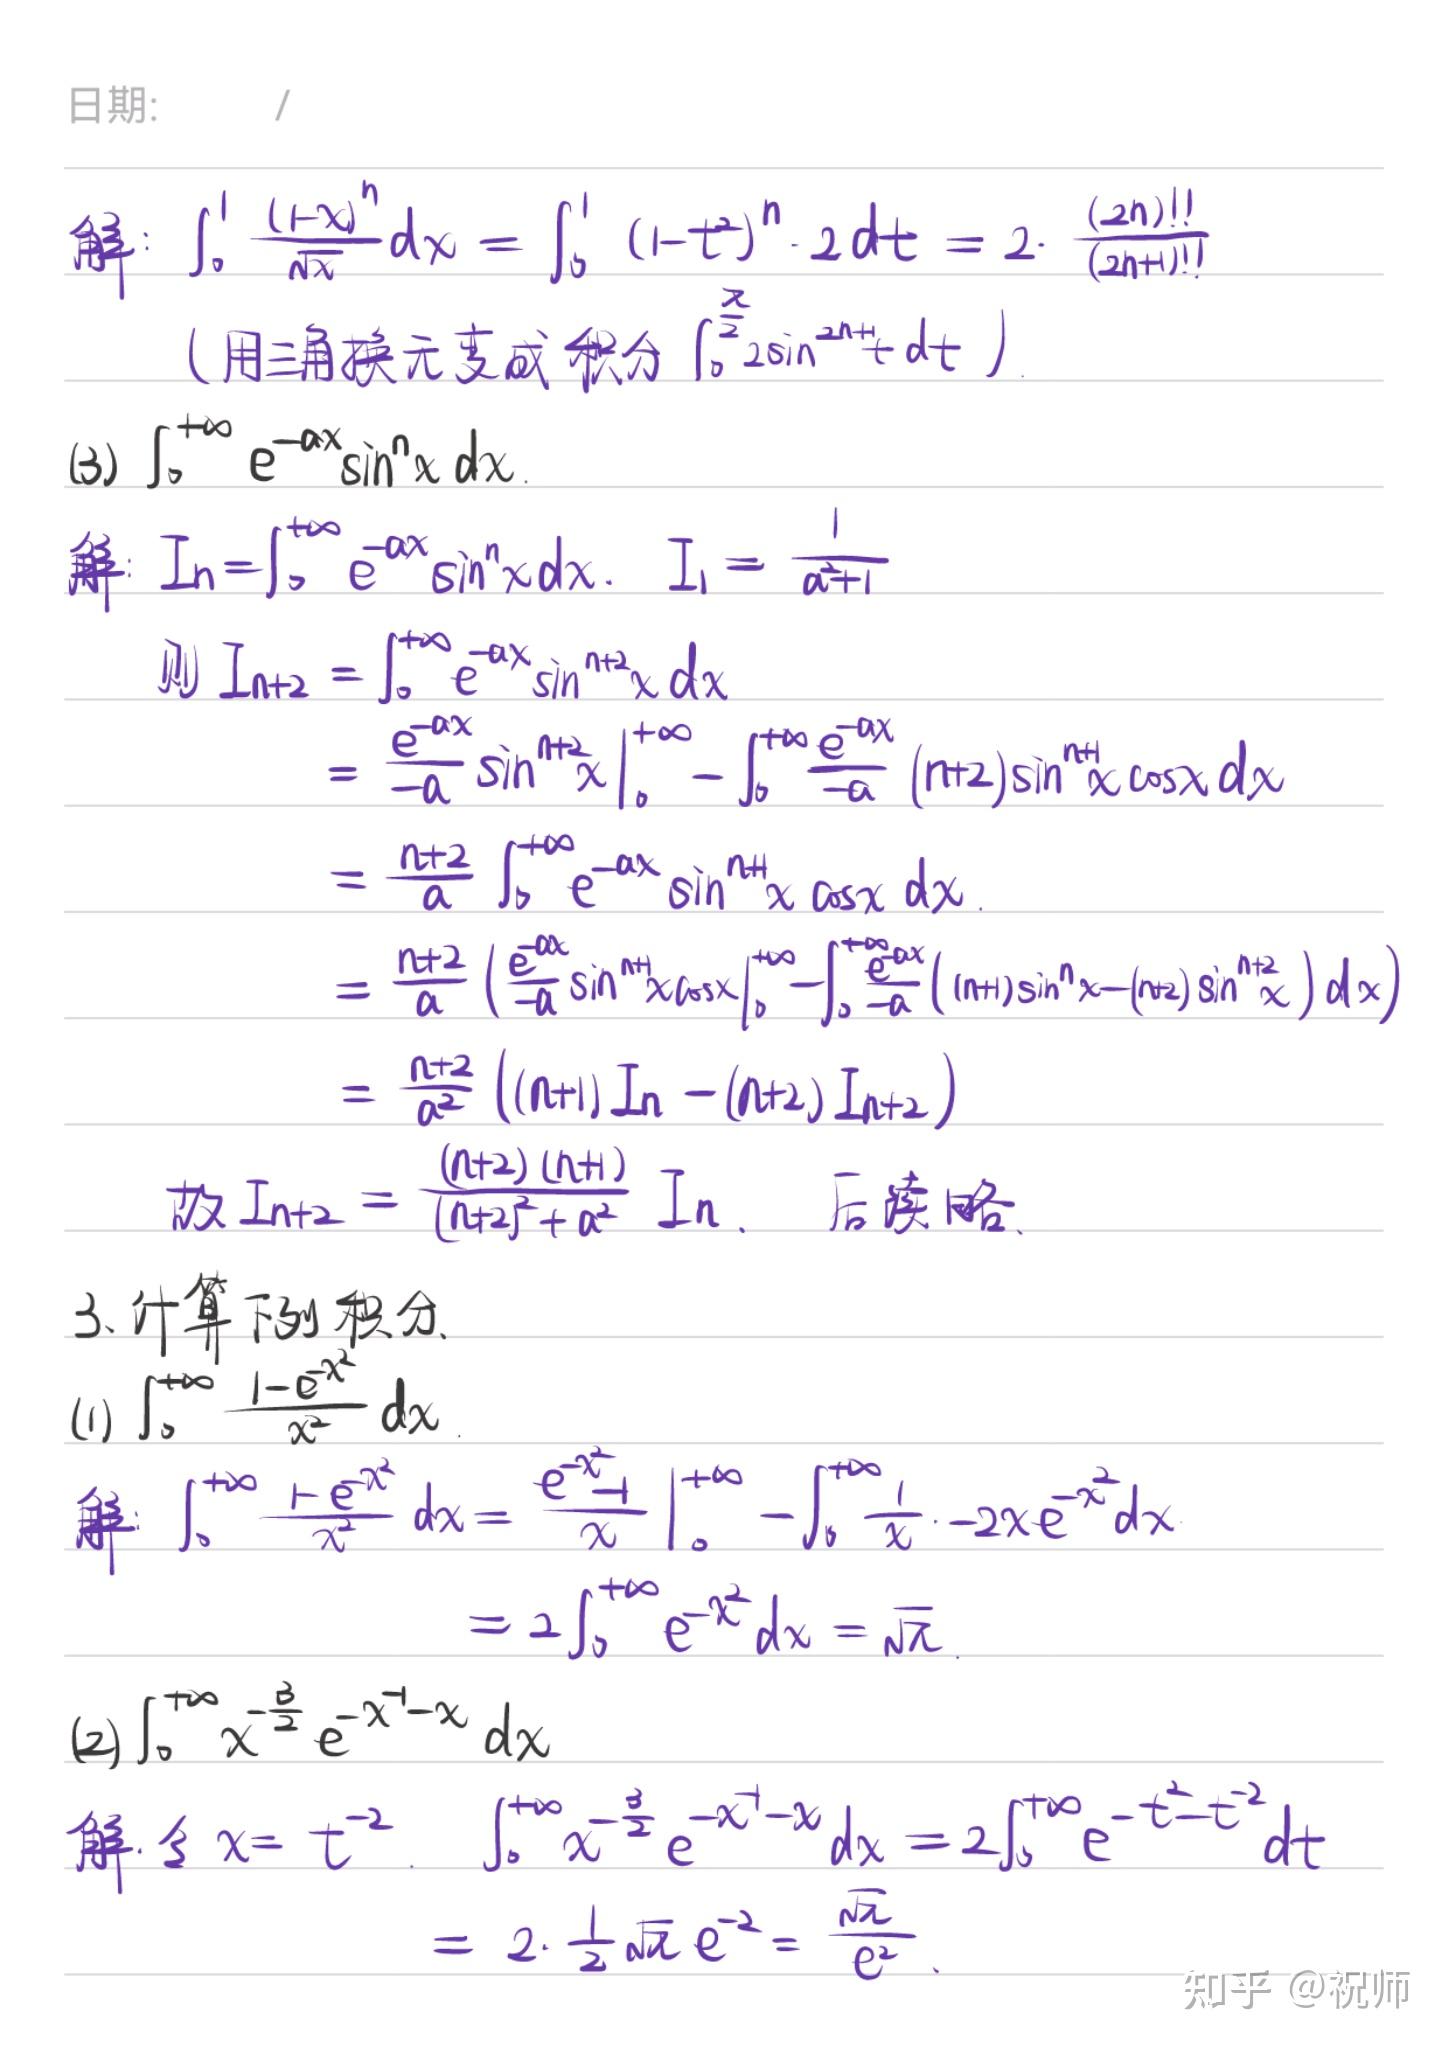 日期: /
解: ∫₀¹ (1-x)ⁿ/√x dx = ∫₀¹ (1-t²)ⁿ·2dt = 2·(2n)!!/(2n+1)!!
(用三角换元变成积分 ∫₀^{π/2} 2sin^{2n+1}t dt).
(3) ∫₀^{+∞} e^{-ax} sinⁿx dx.
解: Iₙ = ∫₀^{+∞} e^{-ax} sinⁿx dx. I₁ = 1/(a²+1)
则 I_{n+2} = ∫₀^{+∞} e^{-ax} sin^{n+2}x dx
= e^{-ax}/(-a) sin^{n+2}x |₀^{+∞} - ∫₀^{+∞} e^{-ax}/(-a) (n+2)sin^{n+1}x cosx dx
= (n+2)/a ∫₀^{+∞} e^{-ax} sin^{n+1}x cosx dx.
= (n+2)/a (e^{-ax}/(-a) sin^{n+1}x cosx |₀^{+∞} - ∫₀^{+∞} e^{-ax}/(-a) ((n+1)sinⁿx-(n+2)sin^{n+2}x) dx)
= (n+2)/a² ((n+1)Iₙ - (n+2)I_{n+2})
故 I_{n+2} = (n+2)(n+1)/((n+2)²+a²) Iₙ. 后续略.
3、计算下列积分、
(1) ∫₀^{+∞} (1-e^{-x²})/x² dx.
解: ∫₀^{+∞} (1-e^{-x²})/x² dx = (e^{-x²}-1)/x |₀^{+∞} - ∫₀^{+∞} 1/x·-2xe^{-x²}dx.
= 2∫₀^{+∞} e^{-x²}dx = √π.
(2) ∫₀^{+∞} x^{-3/2} e^{-x^{-1}-x} dx
解. 令 x = t^{-2}. ∫₀^{+∞} x^{-3/2} e^{-x^{-1}-x} dx = 2∫₀^{+∞} e^{-t²-t^{-2}} dt
= 2·1/2 √π e^{-2} = √π/e².
知乎 @祝师